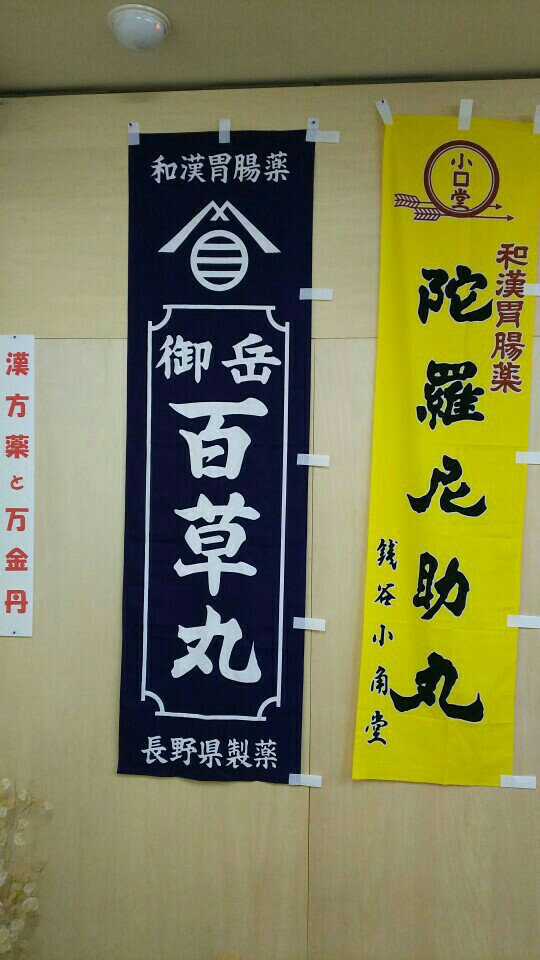 漢方薬と万金丹
和漢胃腸薬
御岳
百草丸
長野県製薬
小口堂
和漢胃腸薬
陀羅尼助丸
銭谷小角堂